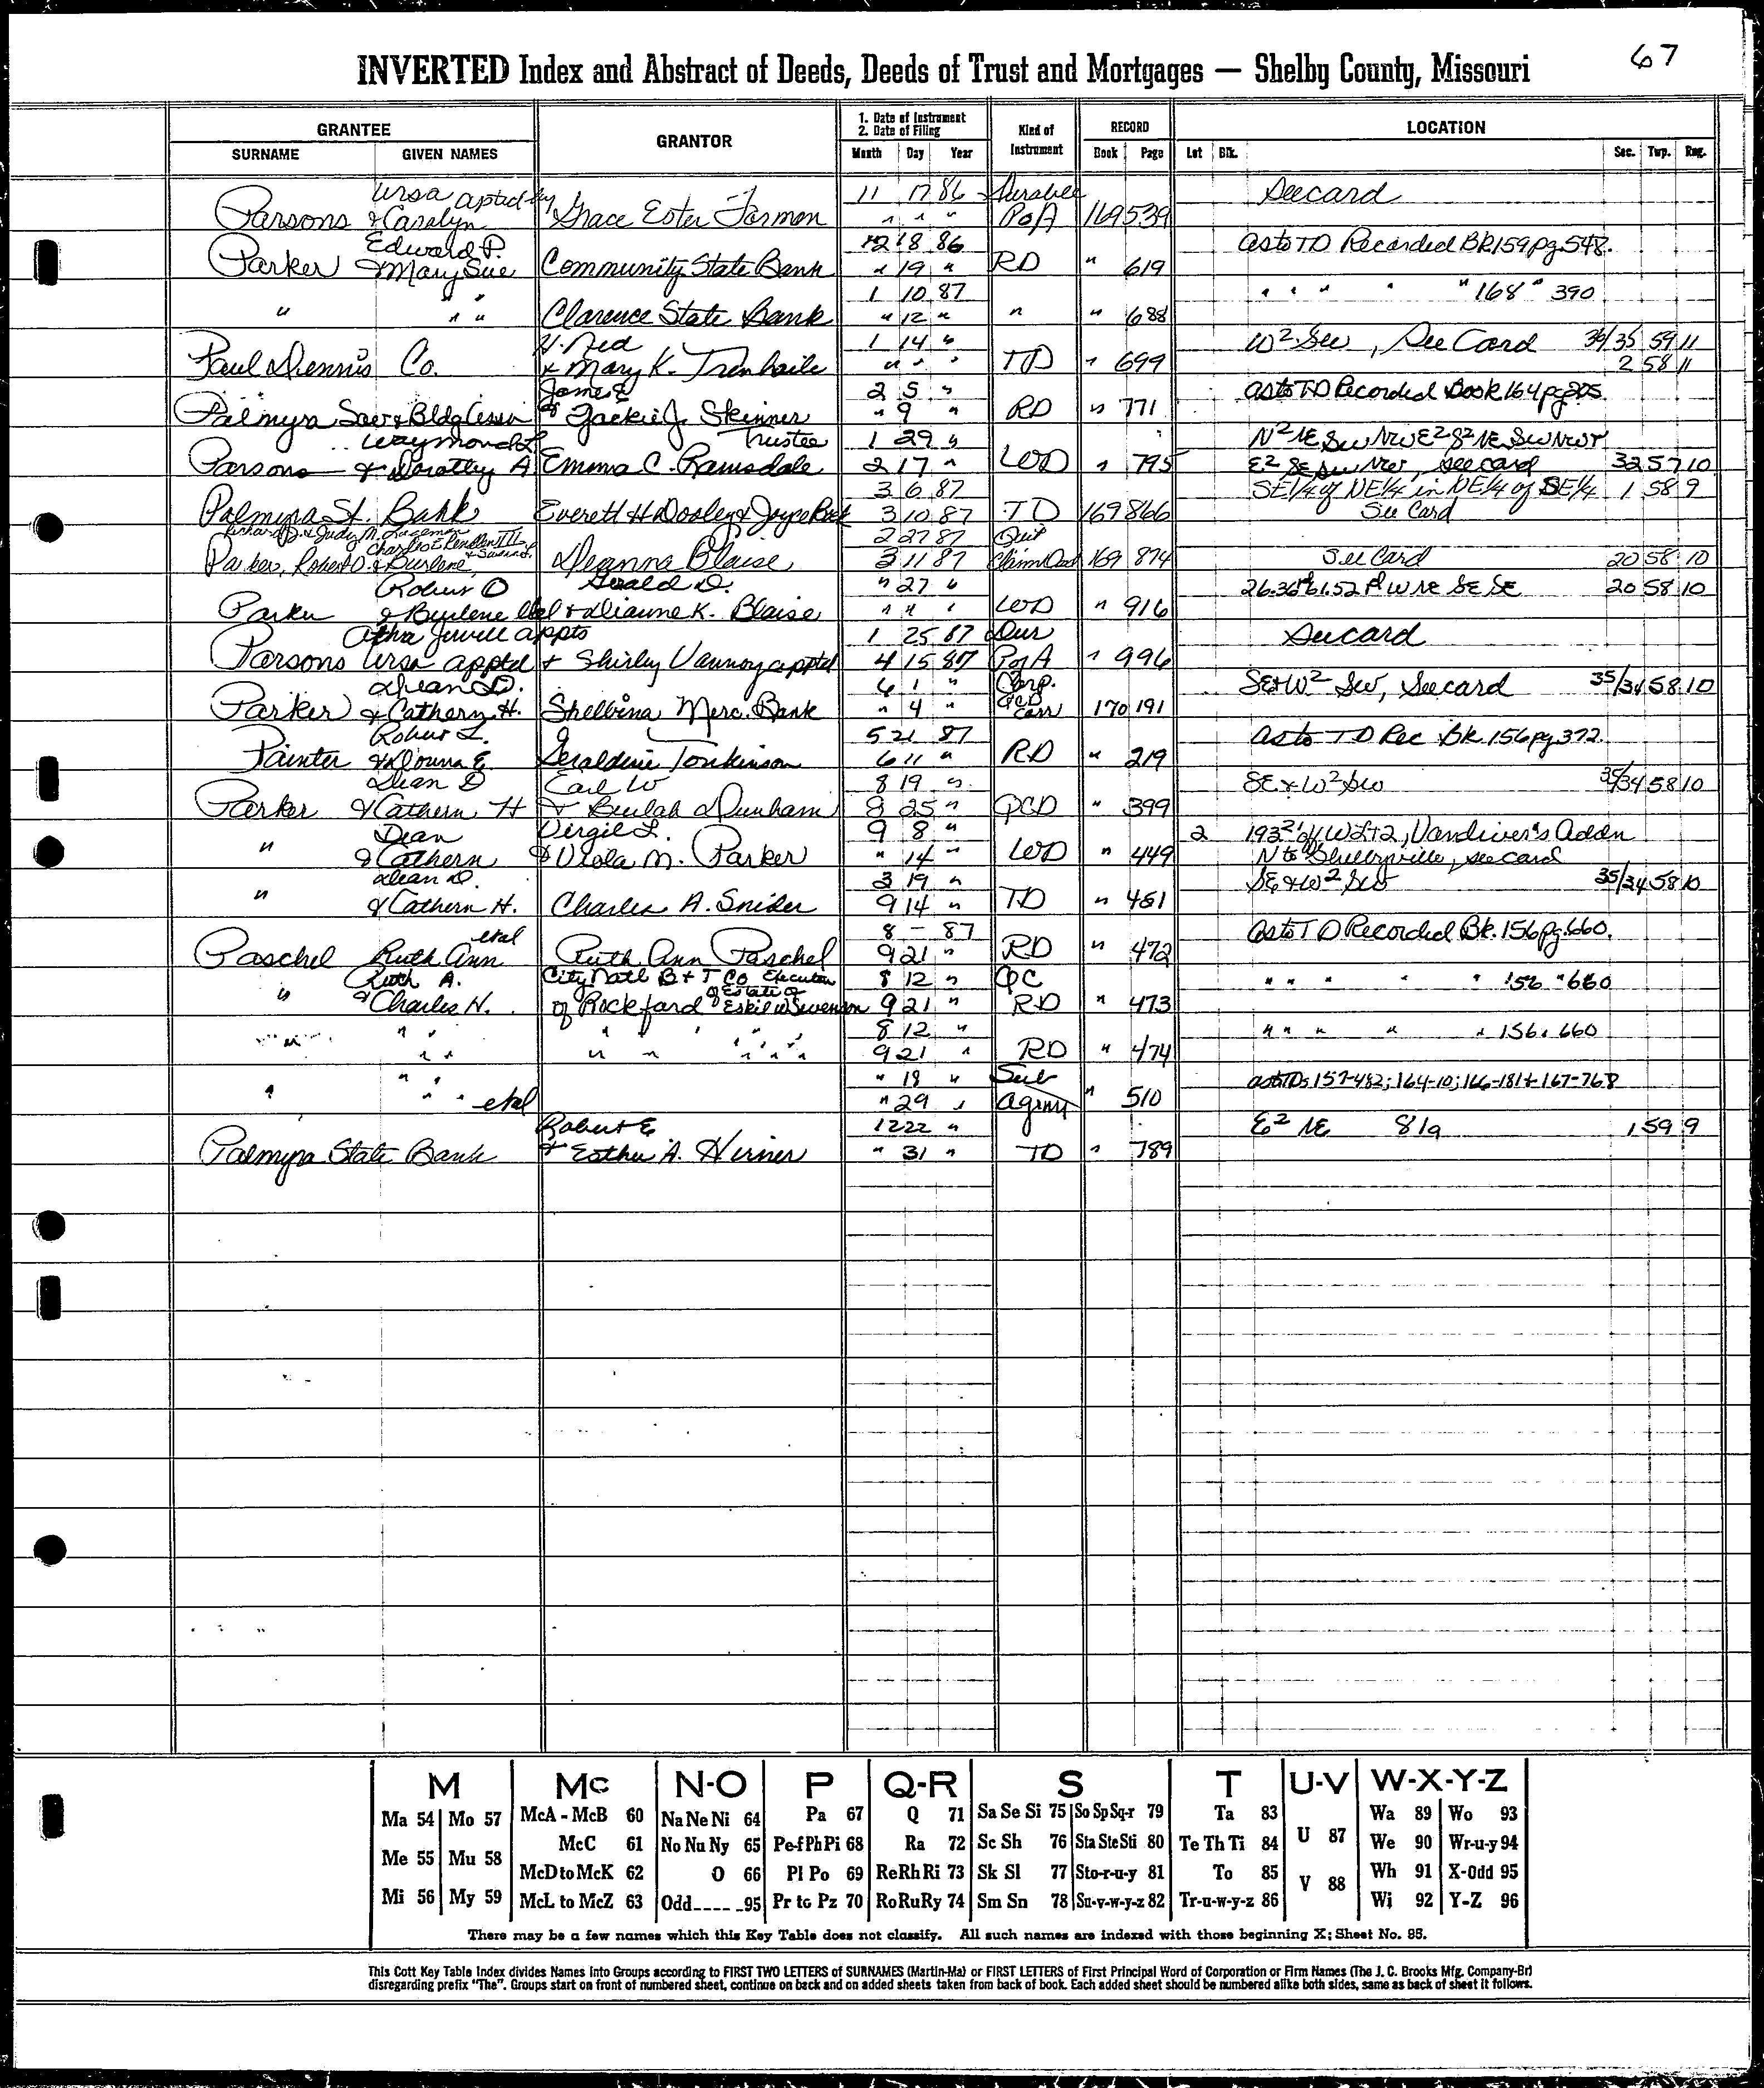 67
INVERTED Index and Abstract of Deeds, Deeds of Trust and Mortgages — Shelby County, Missouri
GRANTEE GRANTOR 1. Date of Instrument 2. Date of Filing Kind of Instrument RECORD LOCATION
SURNAME GIVEN NAMES Month Day Year Book Page Lot Blk. Sec. Twp. Rng.
Ursa aptd by 11 17 86 Durable See card
Parsons & Carolyn Grace Ester Farmon " " " PofA 169 539
Edward P. 12 18 86 as to TD Recorded Bk 159 pg 548.
Parker & Mary Sue Community State Bank " 19 " RD " 619
1 10 87 " " " " " 168 " 390
" " " Clarence State Bank " 12 " " " 688
H. Ned 1 14 " W2 SW, See Card 34/35 59 11
Paul Dennis Co. & Mary K. Trenhaile " " " TD " 699 2 58 11
James E 2 5 " as to TD Recorded Book 164 pg 205.
Palmyra Sav & Bldg Assn & Jackie J. Skinner " 9 " RD " 771
Waymond L. Trustee 1 29 " N2 NE SW NW E2 S2 NE SW NW &
Parsons & Dorothy A Emma C. Ramsdale 2 17 " WD " 795 E2 SE SW NW, see card 32 57 10
3 6 87 SE1/4 of NE1/4 in NE1/4 of SE1/4 1 58 9
Palmyra St. Bank Everett H Dooley & Joyce 3 10 87 TD 169 866 See Card
Richard D. & Judy M. Charles E Pendleton III & 2 27 87 Quit
Parker, Robert O. & Burlene, Deanna Blaise 3 11 87 Claim Deed 169 874 See Card 20 58 10
Robert O Gerald D. " 27 " 26.36 61.52 W NE SE SE 20 58 10
Parker & Burlene etal & Dianne K. Blaise " " " WD " 916
Atha Jewell appts 1 25 87 Dur See card
Parsons Ursa apptd & Shirley Vannoy apptd 4 15 87 PofA " 996
Dean D. 6 1 " Corp. SE & W2 SW, See card 35/34 58 10
Parker & Cathern H. Shelbina Merc. Bank " 4 " QCD Corr 170 191
Robert L. 5 21 87 as to TD Rec Bk. 156 pg 372.
Painter & Donna E. Geraldine Tonkinson 6 11 " RD " 219
Dean D Earl W 8 19 " SE & W2 SW 35/34 58 10
Parker & Cathern H & Beulah Dunham 8 25 " QCD " 399
Dean Virgil L. 9 8 " 2 193 2/3' of W Lt 2, Vandiver's Addn
" & Cathern & Viola M. Parker " 14 " WD " 449 N to Shelbyville, see card
Dean D. 3 19 " SE & W2 SW 35/34 58 10
" & Cathern H. Charles A. Snider 9 14 " TD " 451
etal 8 - 87 as to TD Recorded Bk. 156 pg. 660.
Paschel Ruth Ann Ruth Ann Paschel 9 21 " RD " 472
Ruth A. City Natl B & T Co Executor 8 12 " QC " " " " " 156 " 660
" & Charles H. of Rockford of Estate of Eskil W Swenson 9 21 " RD " 473
" " 8 12 " " " " " " 156 " 660
" " " " " 9 21 " RD " 474
" " " 18 " Sub as to TDs 157-482; 164-10; 166-181 & 167-768
" " " etal " 29 " Agrmt " 510
Robert E 12 22 " E2 NE 81a 1 59 9
Palmyra State Bank & Esther A. Hirner " 31 " TD " 789
M Mc N-O P Q-R S T U-V W-X-Y-Z
Ma 54 Mo 57 McA - McB 60 Na Ne Ni 64 Pa 67 Q 71 Sa Se Si 75 So Sp Sq-r 79 Ta 83 U 87 Wa 89 Wo 93
McC 61 No Nu Ny 65 Pe-f Ph Pi 68 Ra 72 Sc Sh 76 Sta Ste Sti 80 Te Th Ti 84 We 90 Wr-u-y 94
Me 55 Mu 58 McD to McK 62 O 66 Pl Po 69 Re Rh Ri 73 Sk Sl 77 Sto-r-u-y 81 To 85 V 88 Wh 91 X-Odd 95
Mi 56 My 59 McL to McZ 63 Odd 95 Pr to Pz 70 Ro Ru Ry 74 Sm Sn 78 Su-v-w-y-z 82 Tr-u-w-y-z 86 Wi 92 Y-Z 96
There may be a few names which this Key Table does not classify. All such names are indexed with those beginning X; Sheet No. 95.
This Cott Key Table Index divides Names into Groups according to FIRST TWO LETTERS of SURNAMES (Martin-Ma) or FIRST LETTERS of First Principal Word of Corporation or Firm Names (The J. C. Brooks Mfg. Company-Br)
disregarding prefix "The". Groups start on front of numbered sheet, continue on back and on added sheets taken from back of book. Each added sheet should be numbered alike both sides, same as back of sheet it follows.